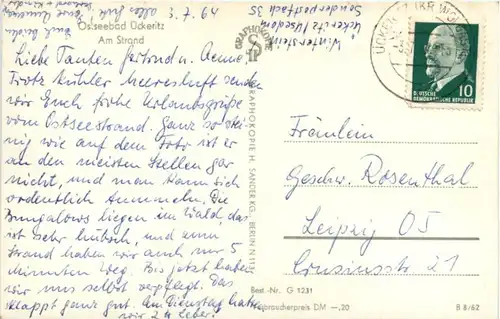 3. 7. 64
Ostseebad Ückeritz
Am Strand
Liebe Tanten Gertrud u. Aenne
Trotz kühler Meeresluft senden
wir Euch frohe Urlaubsgrüße
vom Ostseestrand. Ganz so stei-
nig wie auf dem Foto ist er
an den meisten Stellen gar
nicht, und man kann sich
ordentlich tummeln. Die
Bungalows liegen im Wald, das
ist sehr hübsch, und zum
Strand haben wir auch nur 5
Minuten Weg. Bis jetzt haben
wir uns selbst verpflegt. Das
klappt ganz gut. Am Dienstag hatte
wir 24
GRAPHOKOPIE
GRAPHOKOPIE H. SANDER KG. BERLIN N 113
Winterstein
Ückeritz/Usedom
Sonderpostfach 35
10
DEUTSCHE
DEMOKRATISCHE REPUBLIK
Fräulein
Geschw. Rosenthal
Leipzig O5
Crusiusstr. 21
Best.-Nr. G 1231
Verbraucherpreis DM -,20
B 8/62